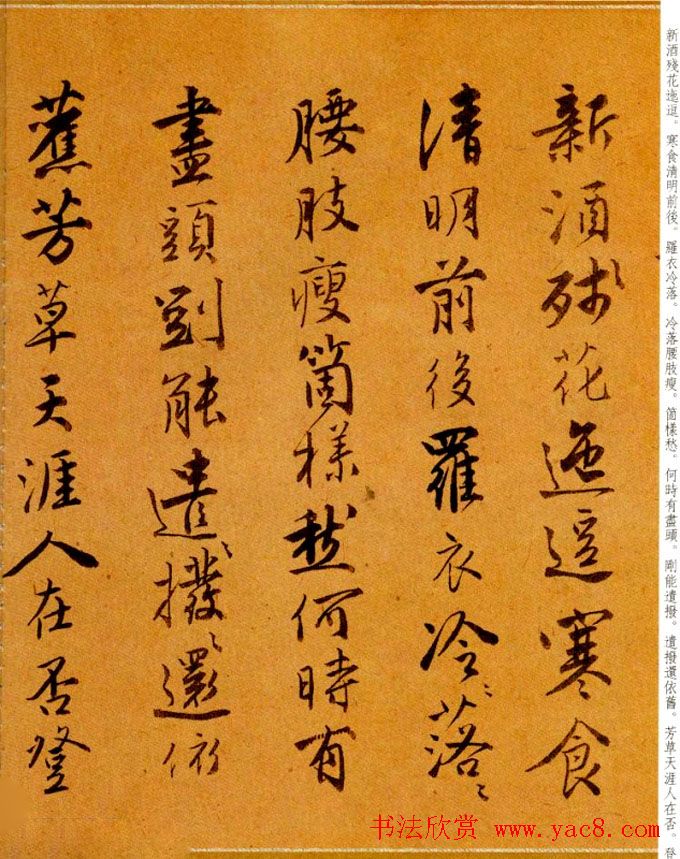 新酒殘花迤逗寒食
清明前後羅衣冷落〻
腰肢瘦箇樣愁何時有
盡頭剛能遣〻撥〻還依
舊芳草天涯人在否登
新酒殘花迤逗。寒食清明前後。羅衣冷落。冷落腰肢瘦。箇樣愁。何時有盡頭。剛能遣撥。遣撥還依舊。芳草天涯人在否。登
书法欣赏 www.yac8.com